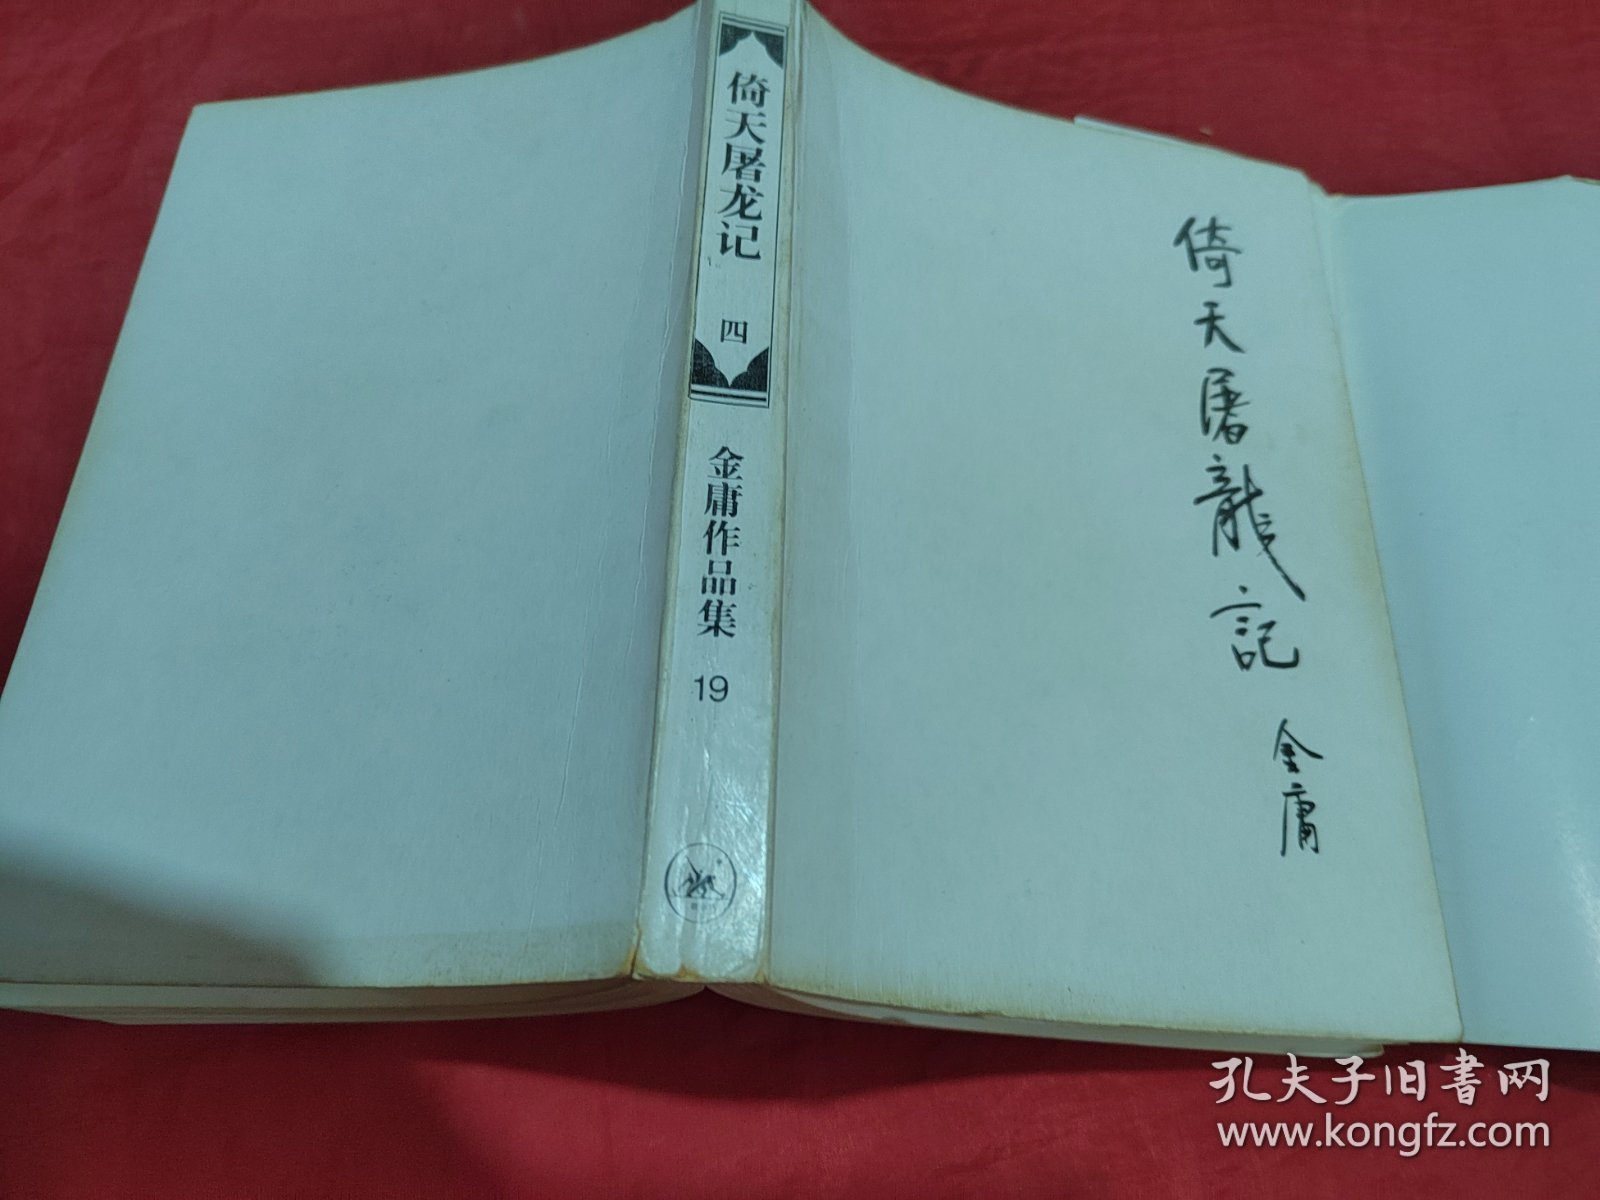 倚天屠龙记
四
金庸作品集
19
倚天屠龍記
金庸
孔夫子旧书网
www.kongfz.com